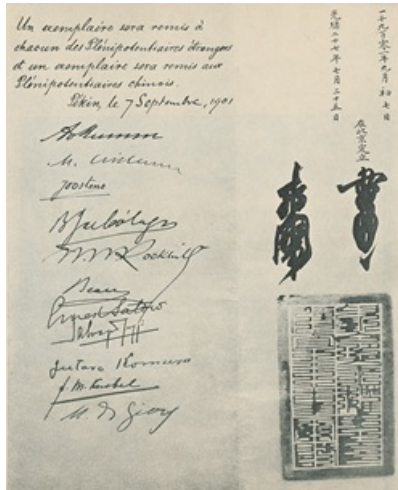 Un exemplaire sera remis à
chacun des Plénipotentiaires étrangers
et un exemplaire sera remis aux
Plénipotentiaires chinois.
Pékin, le 7 Septembre, 1901
Joostens
Rockhill
Beau
Ernest Satow
Jutaro Komura
F. M. Knobel
M. de Giers
一千九百零一年九月初七日
光緒二十七年七月二十五日
在北京定立